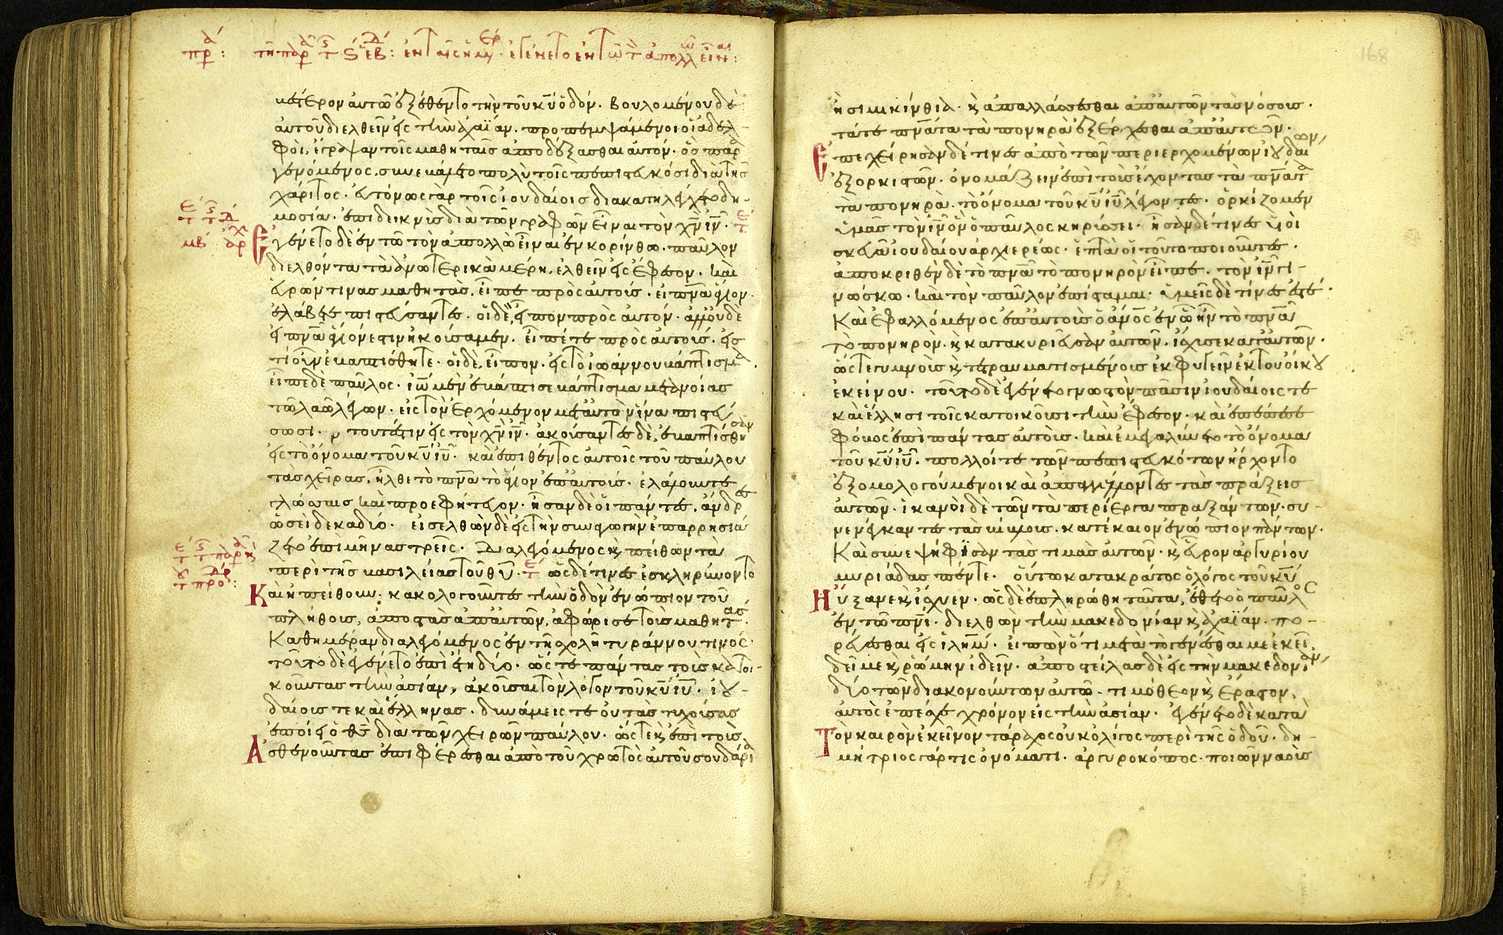 τῆ παρ τ Ϛ εβ: ἐν ταῖς ἡμ ἐγένετο ἐν τῶ τ ἀπολλ εἶναι:
μέτερον αὐτῶ ἐξέθεντο τὴν τοῦ κ̅υ̅ ὁδόν. βουλομένου δὲ
αὐτοῦ διελθεῖν εἰς τὴν ἀχαΐαν. προπεμψάμενοι οἱ ἀδελ-
φοὶ, ἔγραψαν τοῖς μαθηταῖς ἀποδέξασθαι αὐτόν. ὃς παρα
γενόμενος. συνεβάλετο πολὺ τοῖς πεπιστευκόσι διὰ τῆς
χάριτος. εὐτόνως γὰρ τοῖς ἰουδαίοις διακατηλέγχετο δη-
μοσία. ἐπιδεικνὺς διὰ τῶν γραφῶν εἶναι τὸν χ̅ν̅ ι̅ν̅.
Ἐγένετο δὲ ἐν τῶ τὸν ἀπολλὼ εἶναι ἐν κορίνθω. παῦλον
διελθόντα τὰ ἀνωτερικὰ μέρη. ἐλθεῖν εἰς ἔφεσον. καὶ
εὑρών τινας μαθητὰς. εἶπε πρὸς αὐτούς. εἰ π̅ν̅α̅ ἅγιον
ἐλάβετε πιστεύσαντες. οἱ δὲ εἶπον πρὸς αὐτόν. ἀλλ' οὐδὲ
εἰ π̅ν̅α̅ ἅγιόν ἐστιν ἠκούσαμεν. εἶπέ τε πρὸς αὐτούς. εἰς
τί οὖν ἐβαπτίσθητε. οἱ δὲ εἶπον. εἰς τὸ ἰωάννου βάπτισμα.
εἶπε δὲ παῦλος. ἰω̅ μὲν ἐβάπτισε βάπτισμα μετανοίας
τῶ λαῶ λέγων. εἰς τὸν ἐρχόμενον μετ' αὐτὸν ἵνα πιστεύ
σωσι. τουτέστιν εἰς τὸν χ̅ν̅ ι̅ν̅. ἀκούσαντες δὲ, ἐβαπτίσθησαν
εἰς τὸ ὄνομα τοῦ κ̅υ̅ ι̅υ̅. καὶ ἐπιθέντος αὐτοῖς τοῦ παύλου
τὰς χεῖρας. ἦλθε τὸ π̅ν̅α̅ τὸ ἅγιον ἐπ' αὐτούς. ἐλάλουν τε
γλώσσαις καὶ προεφήτευον. ἦσαν δὲ οἱ πάντες, ἄνδρες
ὡσεὶ δεκαδύο. εἰσελθὼν δὲ εἰς τὴν συναγωγὴν ἐπαρρησιά
ζετο ἐπὶ μῆνας τρεῖς. διαλεγόμενος κ πείθων τὰ
περὶ τῆς βασιλείας τοῦ θ̅υ̅. ὡς δέ τινες ἐσκληρύνοντο
Καὶ ἠπείθουν. κακολογοῦντες τὴν ὁδὸν ἐνώπιον τοῦ
πλήθους, ἀποστὰς ἀπ' αὐτῶν, ἀφώρισε τοὺς μαθητάς.
Καθημέραν διαλεγόμενος ἐν τῆ σχολῆ τυράννου τινός.
τοῦτο δὲ ἐγένετο ἐπὶ ἔτη δύο. ὥστε πάντας τοὺς κατοι-
κοῦντας τὴν ἀσίαν, ἀκοῦσαι τὸν λόγον τοῦ κ̅υ̅ ι̅υ̅. ἰου-
δαίους τε καὶ ἕλληνας. δυνάμεις τε οὐ τὰς τυχούσας
ἐποίει ὁ θ̅ς̅ διὰ τῶν χειρῶν παύλου. ὥστε κ ἐπὶ τοὺς
Ἀσθενοῦντας ἐπιφέρεσθαι ἀπὸ τοῦ χρωτὸς αὐτοῦ σουδάρια
168
ἢ σιμικίνθια. κ ἀπαλλάσσεσθαι ἀπ' αὐτῶν τὰς νόσους.
τά τε π̅ν̅α̅τα τὰ πονηρὰ ἐξέρχεσθαι ἀπ' αὐτῶν.
Ἐπεχείρησαν δέ τινες ἀπὸ τῶν περιερχομένων ἰουδαίων,
ἐξορκιστῶν. ὀνομάζειν ἐπὶ τοὺς ἔχοντας τὰ π̅ν̅α̅τα
τὰ πονηρὰ. τὸ ὄνομα τοῦ κ̅υ̅ ι̅υ̅ λέγοντες. ὁρκίζομεν
ὑμᾶς τὸν ι̅ν̅ ὃν ὁ παῦλος κηρύσσει. ἦσαν δέ τινες υἱοὶ
σκευᾶ ἰουδαίου ἀρχιερέως. ἑπτὰ οἱ τοῦτο ποιοῦντες.
ἀποκριθὲν δὲ τὸ π̅ν̅α̅ τὸ πονηρὸν εἶπε. τὸν ι̅ν̅ γι-
νώσκω. καὶ τὸν παῦλον ἐπίσταμαι. ὑμεῖς δὲ τίνες ἐστέ.
Καὶ ἐφαλλόμενος ἐπ' αὐτοὺς ὁ α̅ν̅ο̅ς̅ ἐν ὧ ἦν τὸ π̅ν̅α̅
τὸ πονηρὸν. κ κατακυριεῦσαν αὐτῶν. ἴσχυσε κατ' αὐτῶν.
ὥστε γυμνοὺς κ τετραυματισμένους ἐκφυγεῖν ἐκ τοῦ οἴκου
ἐκείνου. τοῦτο δὲ ἐγένετο γνωστὸν πᾶσιν ἰουδαίοις τε
καὶ ἕλλησι τοῖς κατοικοῦσι τὴν ἔφεσον. καὶ ἐπέπεσε
φόβος ἐπὶ πάντας αὐτοὺς. καὶ ἐμεγαλύνετο τὸ ὄνομα
τοῦ κ̅υ̅ ι̅υ̅. πολλοί τε τῶν πεπιστευκότων ἤρχοντο
ἐξομολογούμενοι καὶ ἀπαγγέλλοντες τὰς πράξεις
αὐτῶν. ἱκανοὶ δὲ τῶν τὰ περίεργα πραξάντων. συ-
νενέγκαντες τὰς βίβλους. κατέκαιον ἐνώπιον πάντων.
Καὶ συνεψήφισαν τὰς τιμὰς αὐτῶν. κ εὗρον ἀργυρίου
μυριάδας πέντε. οὕτω κατακράτος ὁ λόγος τοῦ κ̅υ̅
Ηὔξανε κ ἴσχυεν. ὡς δὲ ἐπληρώθη ταῦτα, ἔθετο ὁ παῦλος
ἐν τῶ π̅ν̅ι̅. διελθὼν τὴν μακεδονίαν κ ἀχαΐαν. πο-
ρεύεσθαι εἰς ἱλημ. εἰπὼν ὅτι μετὰ τὸ γενέσθαι με ἐκεῖ.
δεῖ με κ ρώμην ἰδεῖν. ἀποστείλας δὲ εἰς τὴν μακεδονίαν,
δύο τῶν διακονούντων αὐτῶ. τιμόθεον κ ἔραστον,
αὐτὸς ἐπέσχε χρόνον εἰς τὴν ἀσίαν. ἐγένετο δὲ κατὰ
Τὸν καιρὸν ἐκεῖνον τάραχος οὐκ ὀλίγος περὶ τῆς ὁδοῦ. δη-
μήτριος γάρ τις ὀνόματι. ἀργυροκόπος. ποιῶν ναοὺς